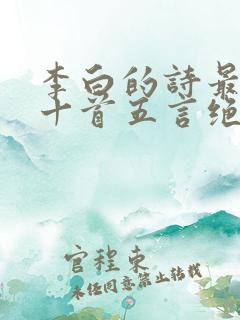 李白的詩最
十首五言绝
官程東
未经同意禁止转载